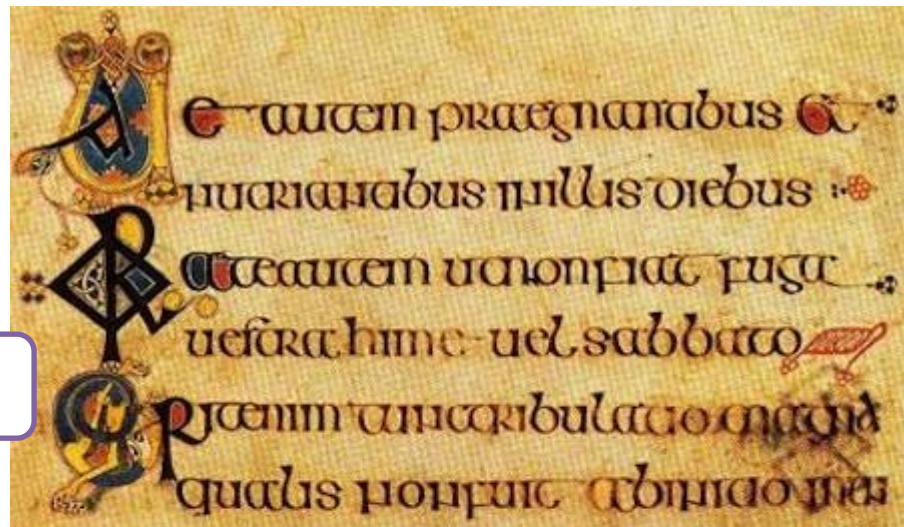 Uae autem praegnantibus &
nutriantibus in illis diebus
Rate autem ut non fiat fuga
uestra hime uel sabbato
Erit enim tunc tribulatio magna
qualis non fuit ab initio